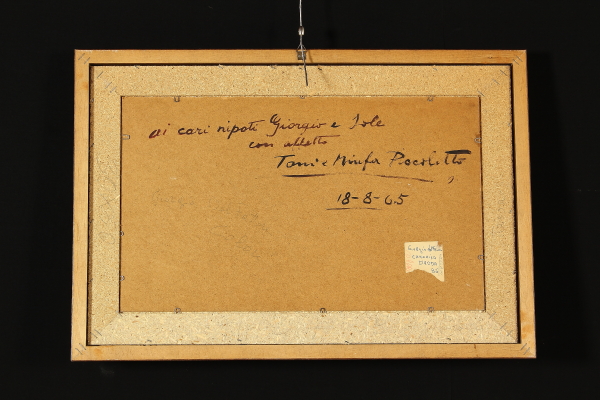 ai cari nipoti Giorgio e Iole
con affetto
Toni e Ninfa Piccolotto
18-8-65